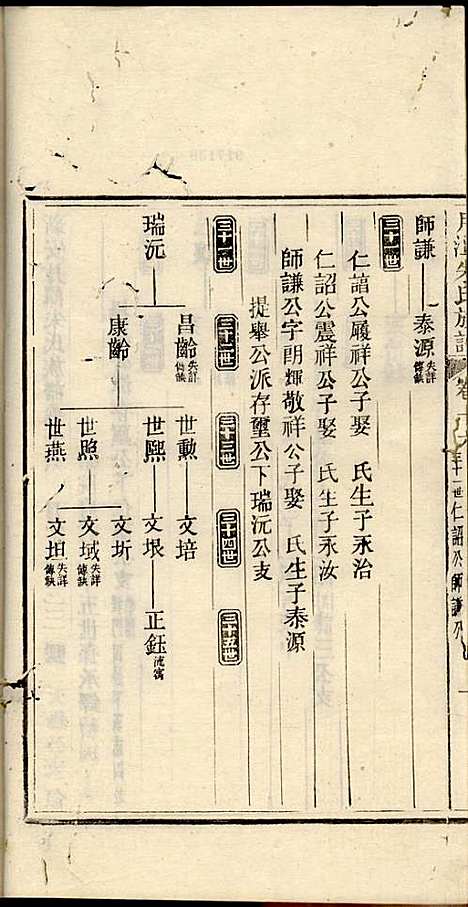 師謙 泰源失詳傳缺
三十一世
仁誥公履祥公子娶 氏生子永治
仁詔公震祥公子娶 氏生子永汝
師謙公字朗輝敬祥公子娶 氏生子泰源
提舉公派存壐公下瑞沅公支
三十一世 三十二世 三十三世 三十四世 三十五世
瑞沅 昌齡失詳傳缺 世勳 文培
世熈 文垠 正鈺流寓
康齡 世照 文圻
文域失詳傳缺
世燕 文坦失詳傳缺
朱氏族譜 卷 三十一世仁詔公師謙公